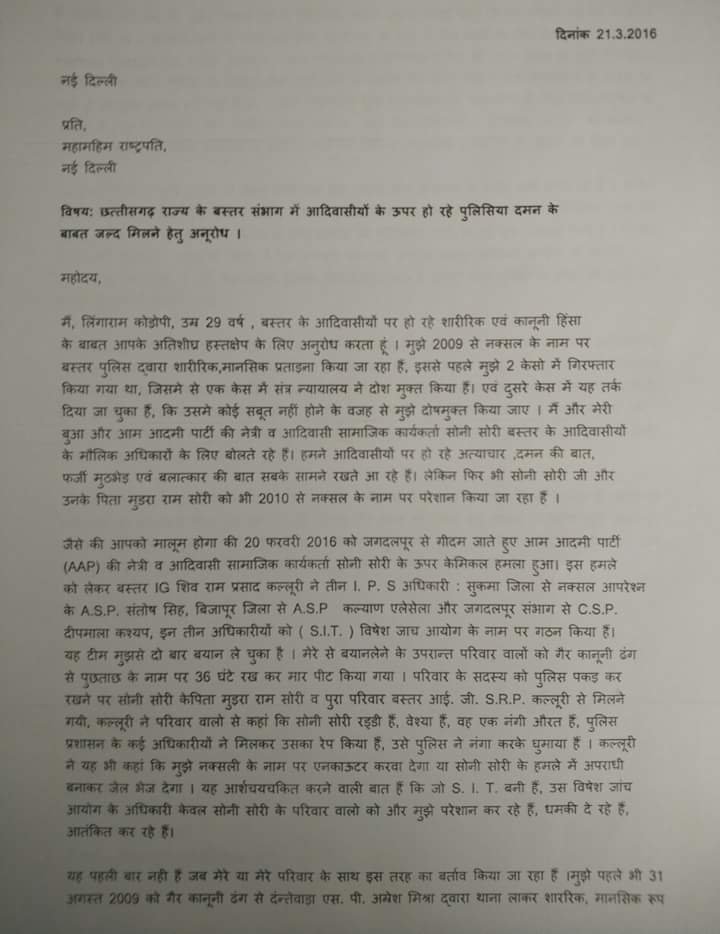 दिनांक 21.3.2016
नई दिल्ली
प्रति,
महामहिम राष्ट्रपति,
नई दिल्ली
विषय: छत्तीसगढ़ राज्य के बस्तर संभाग में आदिवासीयों के ऊपर हो रहे पुलिसिया दमन के
बाबत जल्द मिलने हेतु अनूरोध ।
महोदय,
मैं, लिंगाराम कोडोपी, उम्र 29 वर्ष , बस्तर के आदिवासीयों पर हो रहे शारीरिक एवं कानूनी हिंसा
के बाबत आपके अतिशीघ्र हस्तक्षेप के लिए अनुरोध करता हूं । मुझे 2009 से नक्सल के नाम पर
बस्तर पुलिस द्वारा शारीरिक,मानसिक प्रताड़ना किया जा रहा हैं, इससे पहले मुझे 2 केसो में गिरफ्तार
किया गया था, जिसमे से एक केस में संत्र न्यायालय ने दोश मुक्त किया हैं। एवं दुसरे केस में यह तर्क
दिया जा चुका हैं, कि उसमे कोई सबूत नहीं होने के वजह से मुझे दोषमुक्त किया जाए । मैं और मेरी
बुआ और आम आदमी पार्टी की नेत्री व आदिवासी सामाजिक कार्यकर्ता सोनी सोरी बस्तर के आदिवासीयों
के मौलिक अधिकारों के लिए बोलते रहे हैं। हमने आदिवासीयों पर हो रहे अत्याचार ,दमन की बात,
फर्जी मुठभेड़ एवं बलात्कार की बात सबके सामने रखते आ रहे हैं। लेकिन फिर भी सोनी सोरी जी और
उनके पिता मुडरा राम सोरी को भी 2010 से नक्सल के नाम पर परेशान किया जा रहा हैं ।
जैसे की आपको मालूम होगा की 20 फरवरी 2016 को जगदलपूर से गीदम जाते हुए आम आदमी पार्टी
(AAP) की नेत्री व आदिवासी सामाजिक कार्यकर्ता सोनी सोरी के ऊपर केमिकल हमला हुआ। इस हमले
को लेकर बस्तर IG शिव राम प्रसाद कल्लूरी ने तीन I. P. S अधिकारी : सुकमा जिला से नक्सल आपरेश्न
के A.S.P. संतोष सिह, बिजापूर जिला से A.S.P कल्याण एलेसेला और जगदलपूर संभाग से C.S.P.
दीपमाला कश्यप, इन तीन अधिकारीयों को ( S.I.T. ) विषेश जाच आयोग के नाम पर गठन किया हैं।
यह टीम मुझसे दो बार बयान ले चुका है । मेरे से बयानलेने के उपरान्त परिवार वालों को गैर कानूनी ढंग
से पुछताछ के नाम पर 36 घंटे रख कर मार पीट किया गया । परिवार के सदस्य को पुलिस पकड़ कर
रखने पर सोनी सोरी केपिता मुडरा राम सोरी व पुरा परिवार बस्तर आई. जी. S.R.P. कल्लूरी से मिलने
गयी, कल्लूरी ने परिवार वालो से कहां कि सोनी सोरी रड्डी हैं, वेश्या हैं, वह एक नंगी औरत हैं, पुलिस
प्रशासन के कई अधिकारीयों ने मिलकर उसका रेप किया हैं, उसे पुलिस ने नंगा करके घुमाया हैं । कल्लूरी
ने यह भी कहां कि मुझे नक्सली के नाम पर एनकाऊटर करवा देगा या सोनी सोरी के हमले में अपराधी
बनाकर जेल भेज देगा । यह आर्शचयचकित करने वाली बात हैं कि जो S. I. T. बनी हैं, उस विषेश जांच
आयोग के अधिकारी केवल सोनी सोरी के परिवार वालो को और मुझे परेशान कर रहे हैं, धमकी दे रहे हैं,
आतंकित कर रहे हैं।
यह पहली बार नही हैं जब मेरे या मेरे परिवार के साथ इस तरह का बर्ताव किया जा रहा हैं ।मुझे पहले भी 31
अगस्त 2009 को गैर कानूनी ढंग से दंन्तेवाडा एस. पी. अम्रेश मिश्रा द्वारा थाना लाकर शाररिक, मानसिक रूप